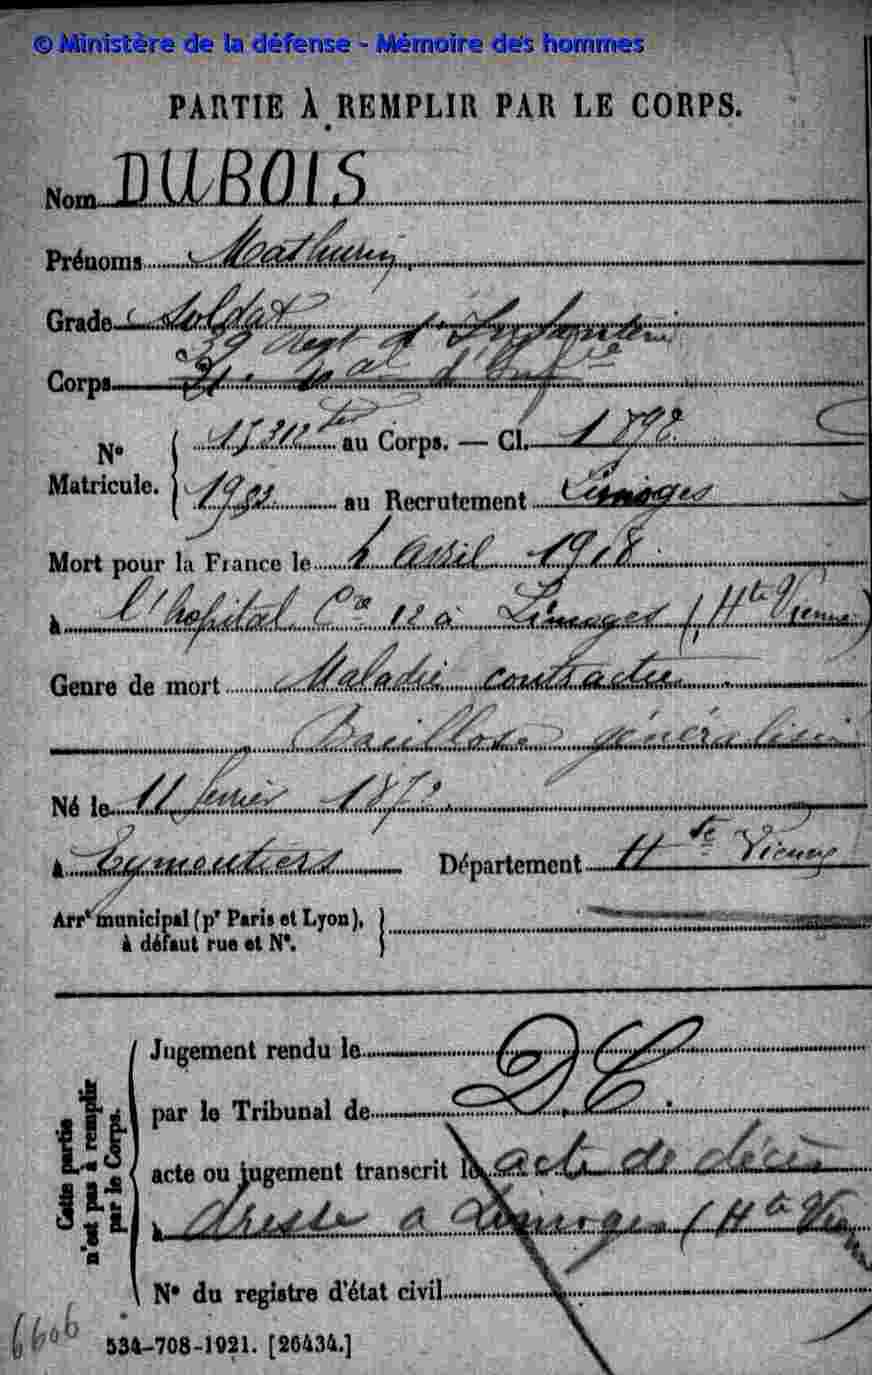 © Ministère de la défense - Mémoire des hommes
PARTIE À REMPLIR PAR LE CORPS.
Nom DUBOIS
Prénoms Mathurin
Grade Soldat
39 Regt d'Infanterie
Corps d'Inf ie
Nº Matricule. 17312 ter au Corps. — Cl. 1892
1932 au Recrutement Limoges
Mort pour la France le 4 Avril 1918.
à l'hopital Cre 12 à Limoges (Hte Vienne)
Genre de mort Maladie contractée.
Bacillose généralisée
Né le 11 février 1872
à Eymoutiers Département Hte Vienne
Arrt municipal (pr Paris et Lyon),
à défaut rue et Nº.
Cette partie n'est pas à remplir par le Corps.
Jugement rendu le
par le Tribunal de
D.C.
acte ou jugement transcrit le acte de décès
à dressé a Limoges (Hte Vienne)
Nº du registre d'état civil
6606
534-708-1921. [26434.]